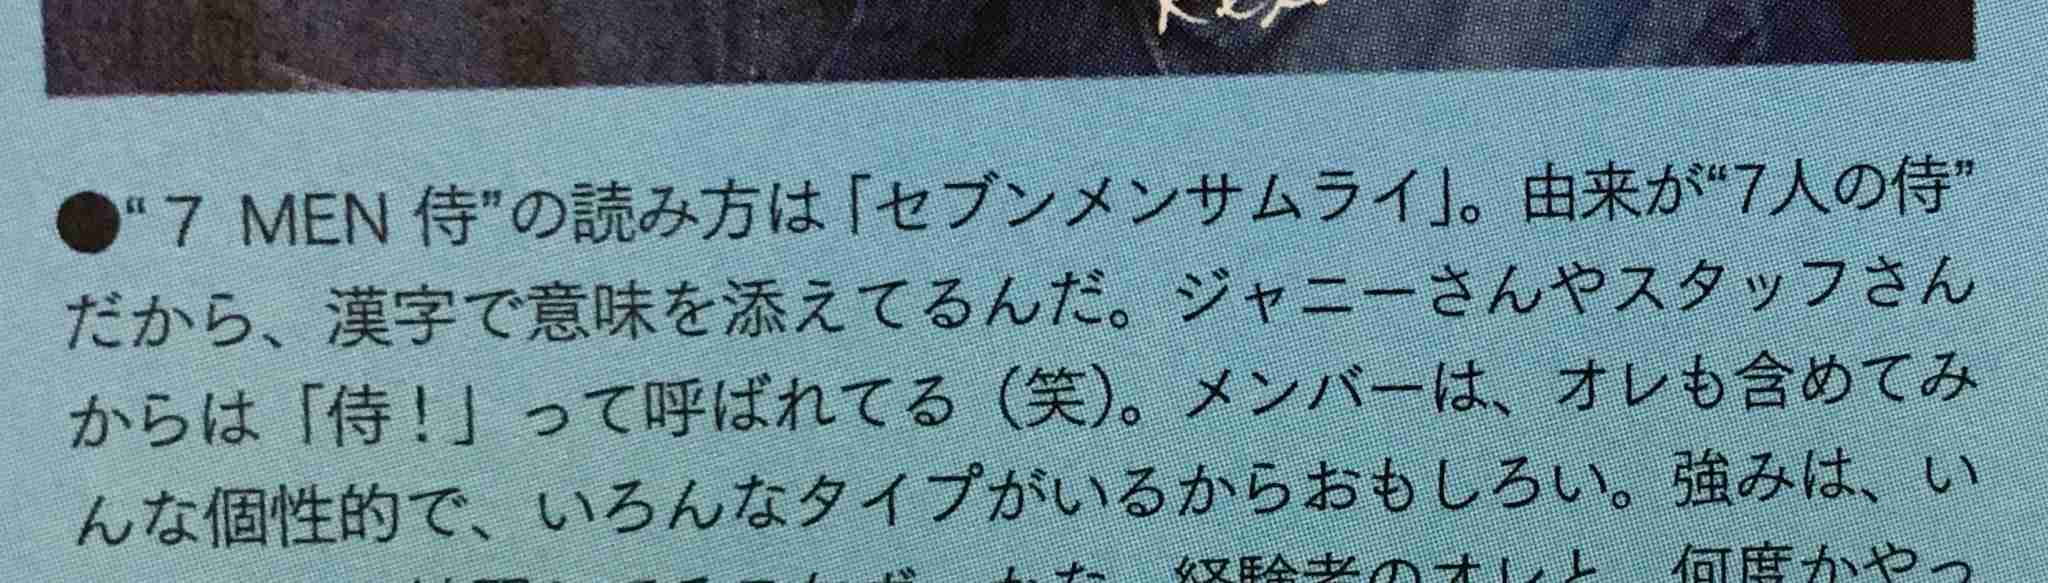 ●“７ MEN 侍”の読み方は「セブンメンサムライ」。由来が“7人の侍”
だから、漢字で意味を添えてるんだ。ジャニーさんやスタッフさん
からは「侍！」って呼ばれてる（笑）。メンバーは、オレも含めてみ
んな個性的で、いろんなタイプがいるからおもしろい。強みは、い
経験者のオレと、何度かやっ